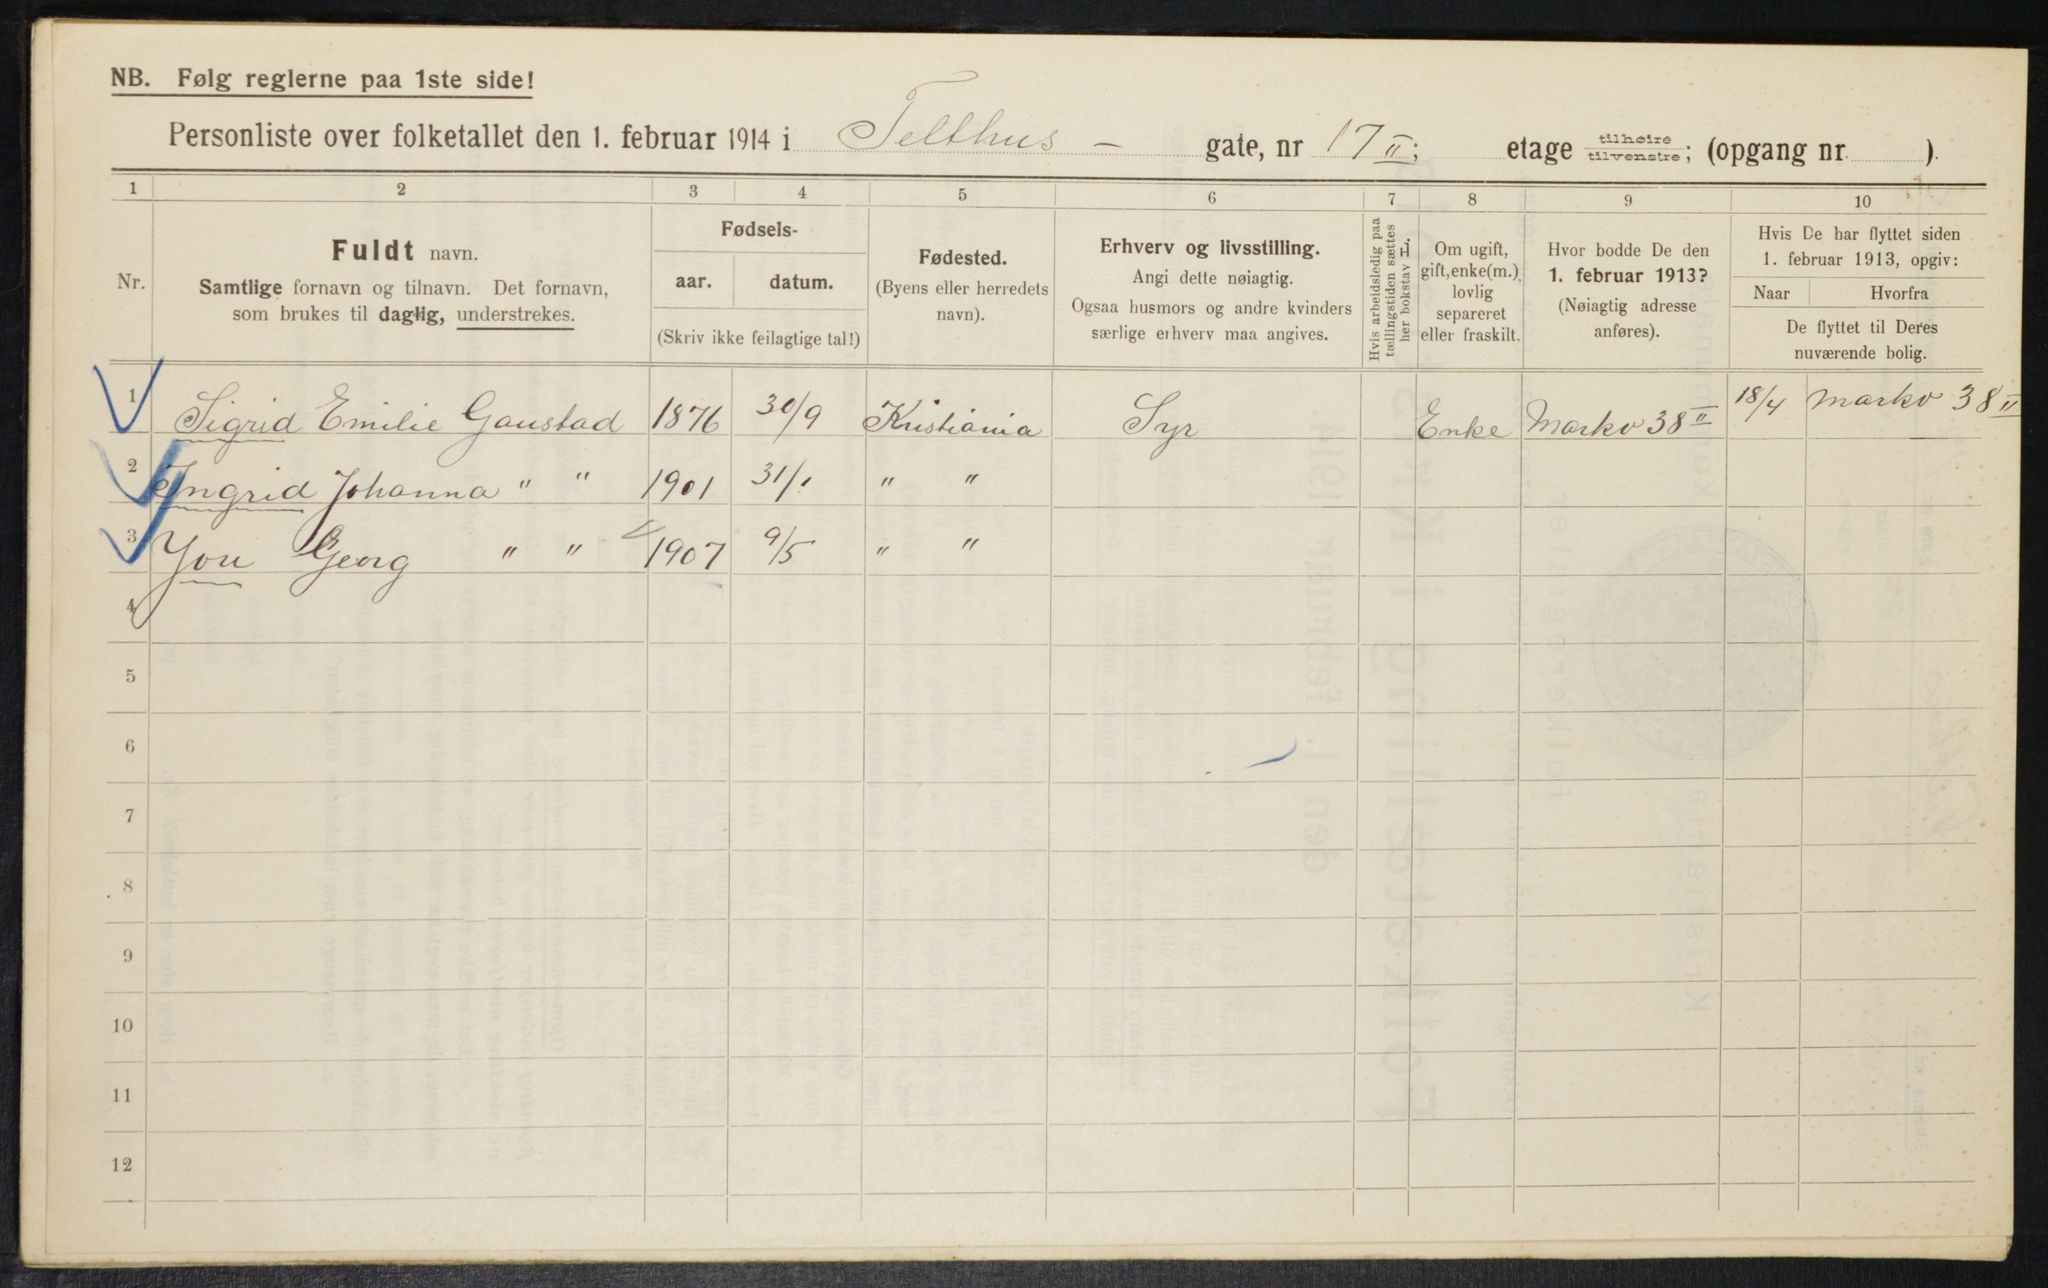 NB. Følg reglerne paa 1ste side!
Personliste over folketallet den 1. februar 1914 i Telthus - gate, nr 17 II; etage tilhøire tilvenstre; (opgang nr. ).
1 2 3 4 5 6 7 8 9 10
Nr.
Fuldt navn.
Samtlige fornavn og tilnavn. Det fornavn,
som brukes til daglig, understrekes.
Fødsels-
aar. datum.
(Skriv ikke feilagtige tal!)
Fødested.
(Byens eller herredets
navn).
Erhverv og livsstilling.
Angi dette nøiagtig.
Ogsaa husmors og andre kvinders
særlige erhverv maa angives.
Hvis arbeidsledig paa
tællingstiden sættes
her bokstav L.
Om ugift,
gift, enke(m.),
lovlig
separeret
eller fraskilt.
Hvor bodde De den
1. februar 1913?
(Nøiagtig adresse
anføres).
Hvis De har flyttet siden
1. februar 1913, opgiv:
Naar Hvorfra
De flyttet til Deres
nuværende bolig.
1 Sigrid Emilie Gaustad 1876 30/9 Kristiania Syr Enke Markv 38 II 18/4 Markv 38 II
2 Ingrid Johanna " " 1901 31/1 " "
3 Jon Georg " " 1907 9/5 " "
4
5
6
7
8
9
10
11
12